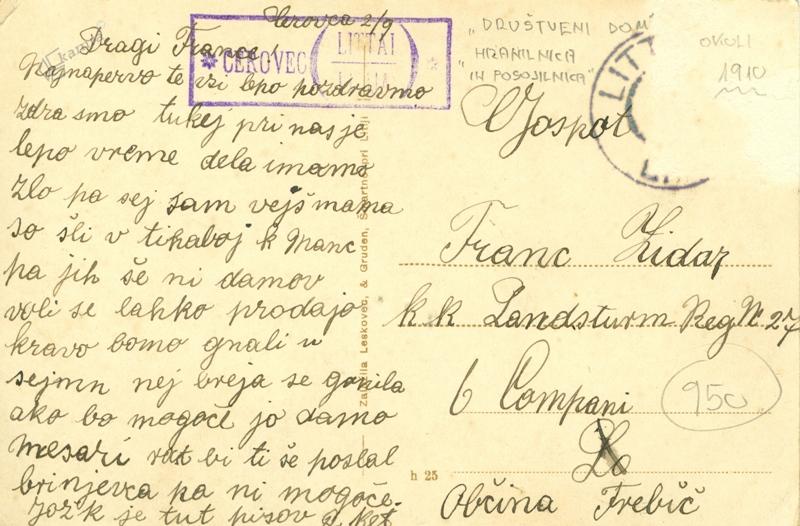 Cerovca 2/9
Dragi France!
Najnapervo te vsi lepo pozdravmo
zdra smo tukej pri nas je
lepo vreme dela imamo
zlo pa sej sam vejš mama
so šli v tihaboj k Manc
pa jih še ni damov
voli se lahko prodajo
kravo bomo gnali u
sejmn nej breja se gonila
ako bo mogoče jo damo
mesarí rat bi ti še poslal
brinjevca pa ni mogoče.
Jozk je tut pisov
kamra
* CEROVEC
LITTAI
*
"DRUŠTVENI DOM
HRANILNICA
IN POSOJILNICA"
OKOLI
1910
LITT
Založila Leskovec, & Gruden,
h 25
Gospot
Franc Zidar
k k Landsturm Reg Nr. 27
6 Compani
950
Občina Trebič